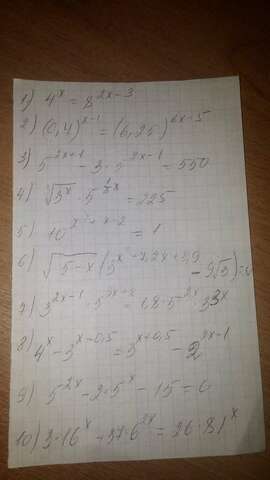 1) 4^x = 8^{2x-3}
2) (0,4)^{x-1} = (6,25)^{6x-5}
3) 5^{2x+1} - 3 · 5^{2x-1} = 550
4) √3^x · 5^{\frac{1}{2}x} = 225
5) 10^{x^2+x-2} = 1
6) √5-x (5^{x^2-7,2x+3,9} - 9√5) = 0
7) 3^{2x-1} · 5^{3x+2} = 18 · 5^{2x} · 3^{3x}
8) 4^x - 3^{x-0,5} = 3^{x+0,5} - 2^{2x-1}
9) 5^{2x} - 2 · 5^x - 15 = 0
10) 3 · 16^x + 37 · 6^{2x} = 26 · 81^x